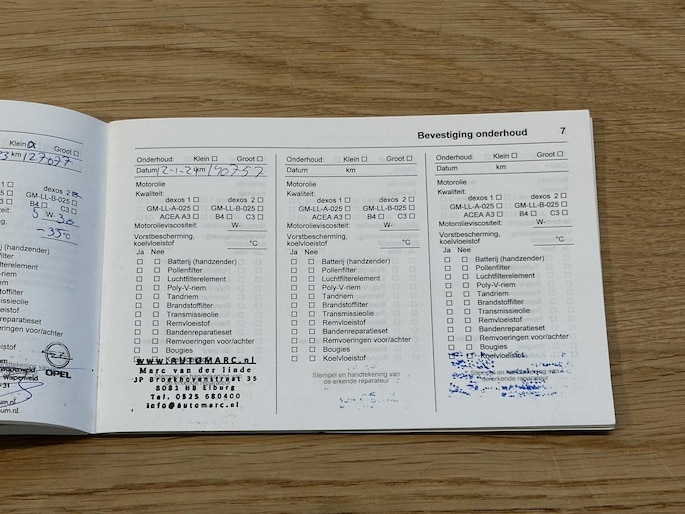 Klein α Groot ☐
3 km 127077
s 1 ☐ dexos 2
5 ☐ GM-LL-B-025 ☐
3 ☐ B4 ☐ C3 ☐
eit: 5 W-30
-35°C
j (handzender)
filter
lterelement
-riem
m
toffilter
issieolie
eistof
nreparatieset
veringen voor/achter
s
tof
OPEL
Wapenveld
31
um.nl
um.nl
Bevestiging onderhoud 7
Onderhoud: Klein ☐ Groot ☐
Datum 12-1-24 km 140757
Motorolie
Kwaliteit:
dexos 1 ☐ dexos 2 ☐
GM-LL-A-025 ☐ GM-LL-B-025 ☐
ACEA A3 ☐ B4 ☐ C3 ☐
Motorolieviscositeit: W-
Vorstbescherming,
koelvloeistof °C
Ja Nee
☐ ☐ Batterij (handzender)
☐ ☐ Pollenfilter
☐ ☐ Luchtfilterelement
☐ ☐ Poly-V-riem
☐ ☐ Tandriem
☐ ☐ Brandstoffilter
☐ ☐ Transmissieolie
☐ ☐ Remvloeistof
☐ ☐ Bandenreparatieset
☐ ☐ Remvoeringen voor/achter
☐ ☐ Bougies
www.AUTOMARC.nl
Marc van der linde
JP Broekhovenstraat 35
8081 HB Elburg
Tel. 0525 680400
info@automarc.nl
Onderhoud: Klein ☐ Groot ☐
Datum km
Motorolie
Kwaliteit:
dexos 1 ☐ dexos 2 ☐
GM-LL-A-025 ☐ GM-LL-B-025 ☐
ACEA A3 ☐ B4 ☐ C3 ☐
Motorolieviscositeit: W-
Vorstbescherming,
koelvloeistof °C
Ja Nee
☐ ☐ Batterij (handzender)
☐ ☐ Pollenfilter
☐ ☐ Luchtfilterelement
☐ ☐ Poly-V-riem
☐ ☐ Tandriem
☐ ☐ Brandstoffilter
☐ ☐ Transmissieolie
☐ ☐ Remvloeistof
☐ ☐ Bandenreparatieset
☐ ☐ Remvoeringen voor/achter
☐ ☐ Bougies
☐ ☐ Koelvloeistof
Stempel en handtekening van
de erkende reparateur
Onderhoud: Klein ☐ Groot ☐
Datum km
Motorolie
Kwaliteit:
dexos 1 ☐ dexos 2 ☐
GM-LL-A-025 ☐ GM-LL-B-025 ☐
ACEA A3 ☐ B4 ☐ C3 ☐
Motorolieviscositeit: W-
Vorstbescherming,
koelvloeistof °C
Ja Nee
☐ ☐ Batterij (handzender)
☐ ☐ Pollenfilter
☐ ☐ Luchtfilterelement
☐ ☐ Poly-V-riem
☐ ☐ Tandriem
☐ ☐ Brandstoffilter
☐ ☐ Transmissieolie
☐ ☐ Remvloeistof
☐ ☐ Bandenreparatieset
☐ ☐ Remvoeringen voor/achter
☐ ☐ Bougies
☐ ☐ Koelvloeistof
Stempel en handtekening van
de erkende reparateur